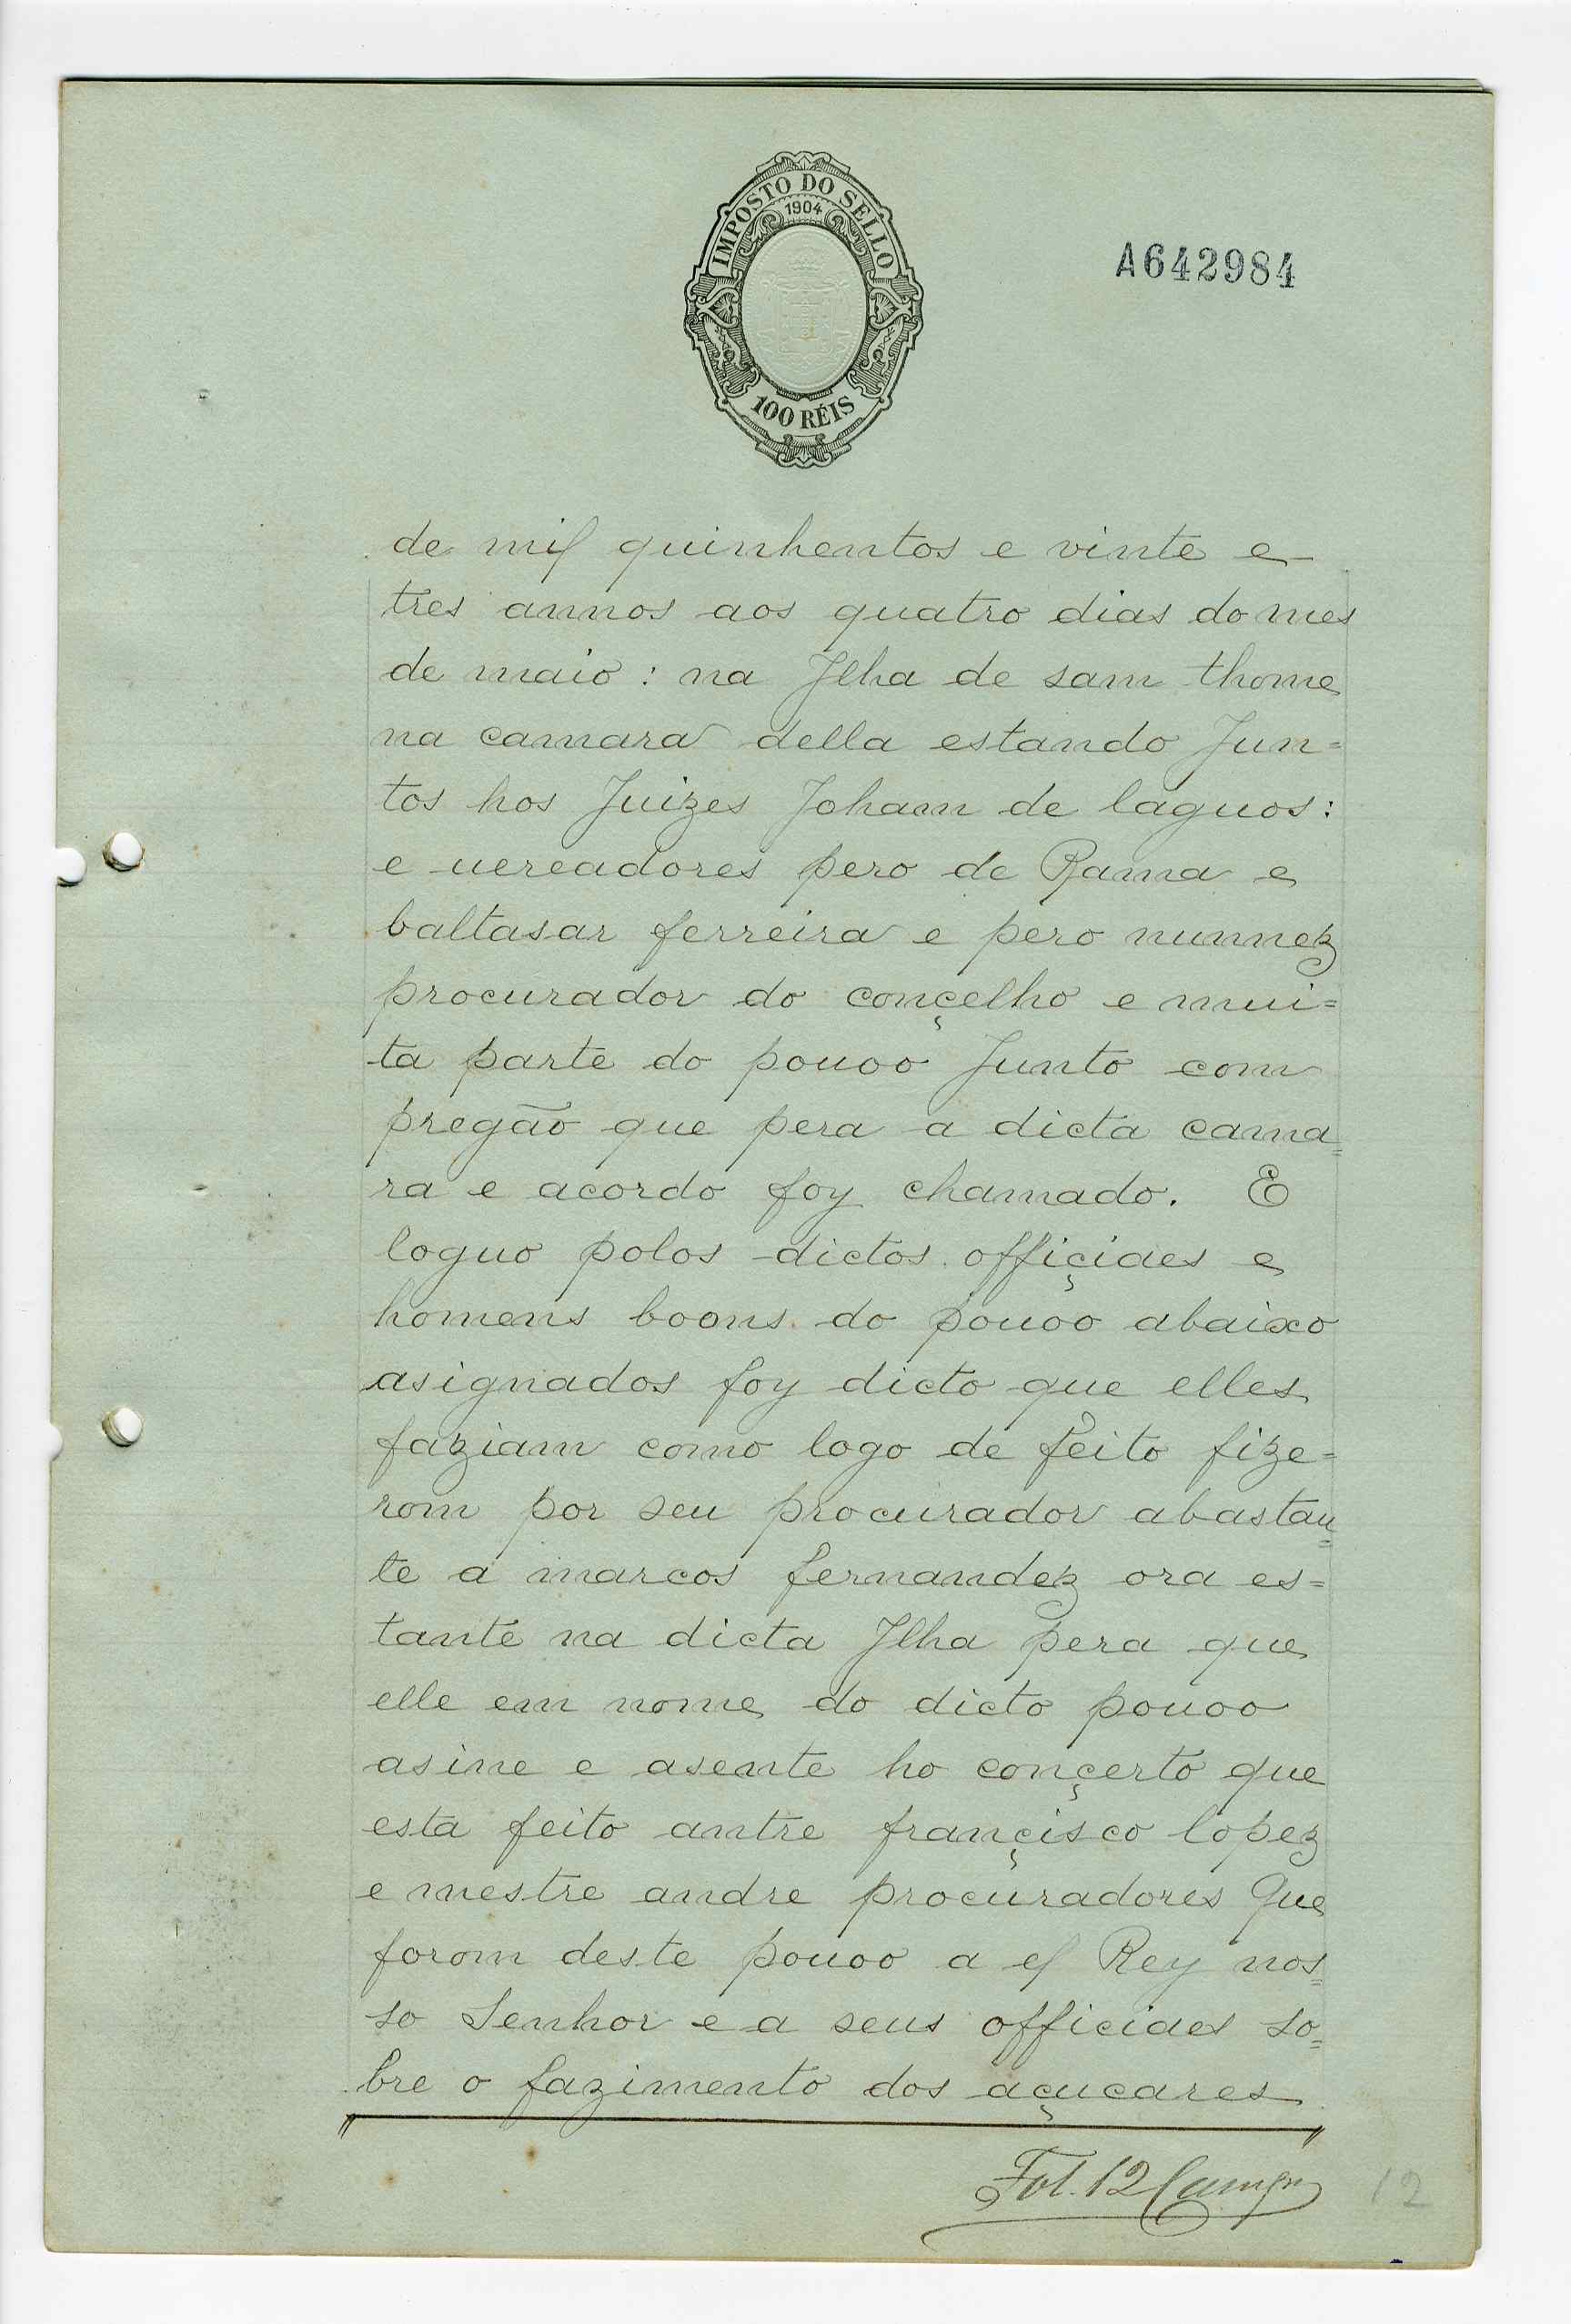 IMPOSTO DO SELLO
1904
100 RÉIS
A642984
de mil quinhentos e vinte e
tres annos aos quatro dias do mes
de maio : na Jlha de sam thome
na camara della estando Jun=
tos hos Juizes Joham de laguos :
e uereadores pero de Rama e
baltasar ferreira e pero nunnez
procurador do conçelho e mui=
ta parte do pouoo Junto com
pregão que pera a dicta cama=
ra e acordo foy chamado. E
loguo polos dictos offiçiaes e
homens boons do pouoo abaixo
asignados foy dicto que elles
faziam como logo de feito fize=
rom por seu procurador abastan=
te a marcos fernandez ora es=
tante na dicta Jlha pera que
elle em nome do dicto pouoo
asine e asente ho conçerto que
esta feito antre françisco lopez
e mestre andre procuradores Que
forom deste pouoo a el Rey nos=
so Senhor e a seus officiaes so=
bre o fazimento dos açucares
Fol. 12
12